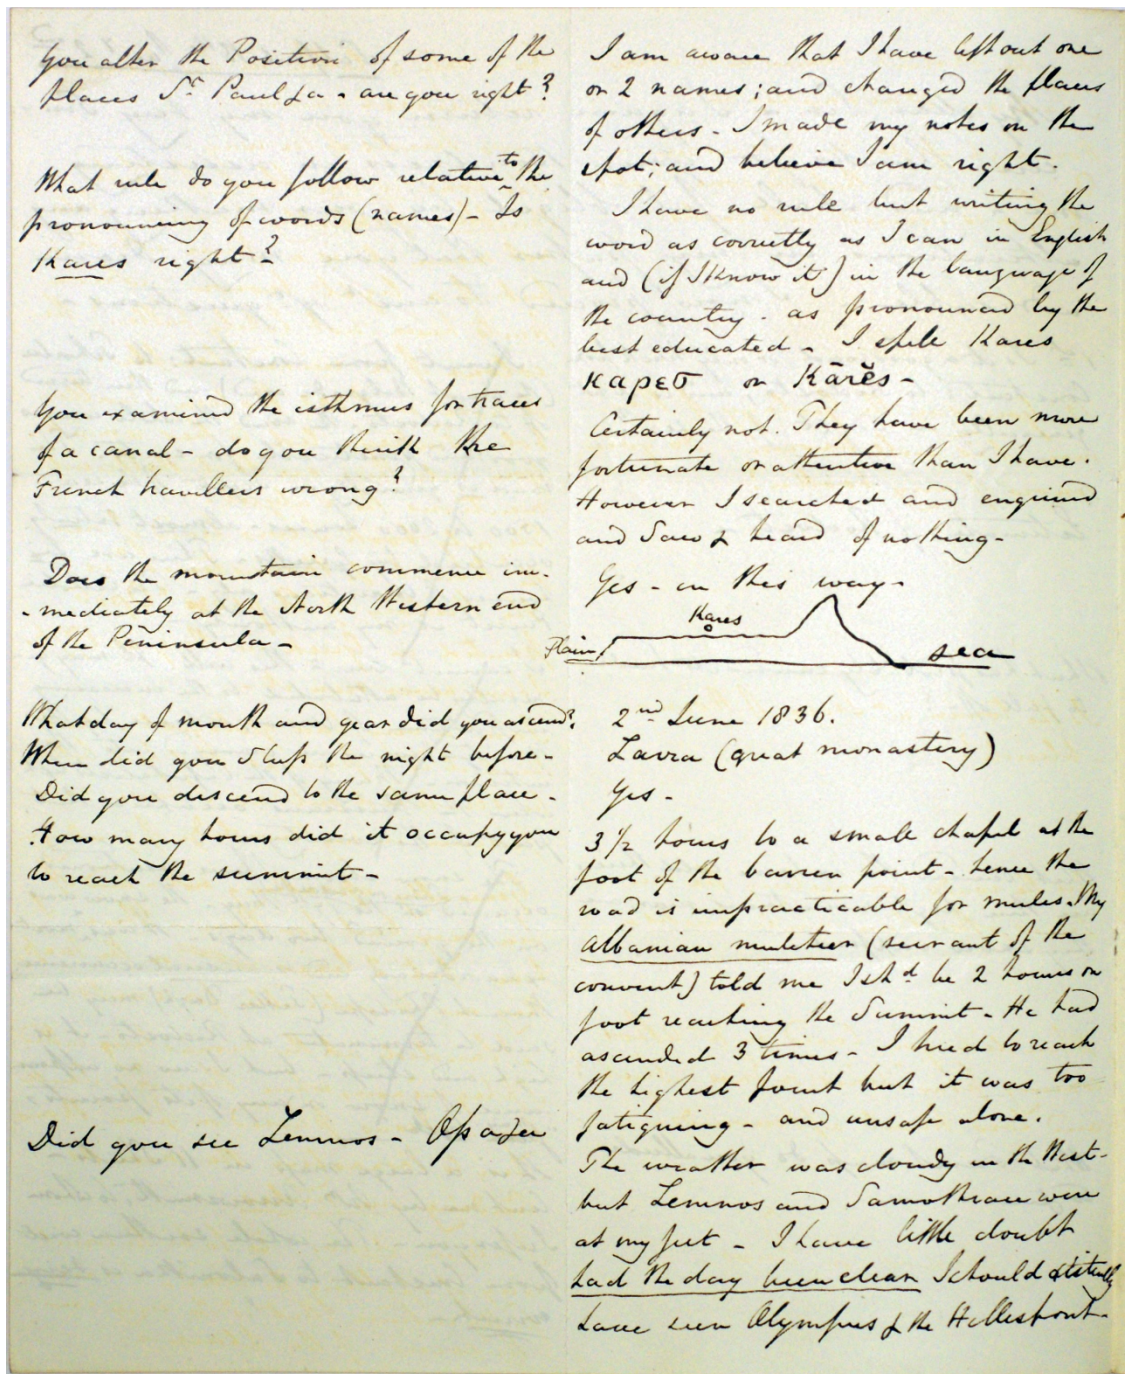 You alter the Position of some of the
places St. Paul &a - are you right?
What rule do you follow relative to the
pronouncing of words (names) - Is
Kares right?
You examined the isthmus for traces
of a canal - do you think the
French travellers wrong?
Does the mountain commence im-
-mediately at the North Western end
of the Peninsula -
What day of month and year did you ascend?
When did you Sleep the night before -
Did you descend to the same place -
How many hours did it occupy you
to reach the summit -
Did you see Lemnos -
I am aware that I have left out one
or 2 names; and changed the places
of others - I made my notes on the
spot; and believe I am right.
I have no rule but writing the
word as correctly as I can in English
and (if I know it) in the language of
the country - as pronounced by the
best educated - I spell Kares
καρεσ or Kārĕs -
Certainly not. They have been more
fortunate or attentive than I have.
However I searched and enquired
and Saw & heard of nothing -
Yes - in this way -
Kares
Plain
sea
2nd June 1836.
Lavra (great monastery)
Yes -
3 1/2 hours to a small chapel at the
foot of the barren point - hence the
road is impracticable for mules. My
Albanian muleteer (servant of the
convent) told me I shd be 2 hours on
foot reaching the Summit - He had
ascended 3 times - I tried to reach
the highest point but it was too
fatiguing - and unsafe alone.
The weather was cloudy in the West -
but Lemnos and Samothrace were
at my feet - I have little doubt
had the day been clear I should distinctly
have seen Olympus & the Hellespont -